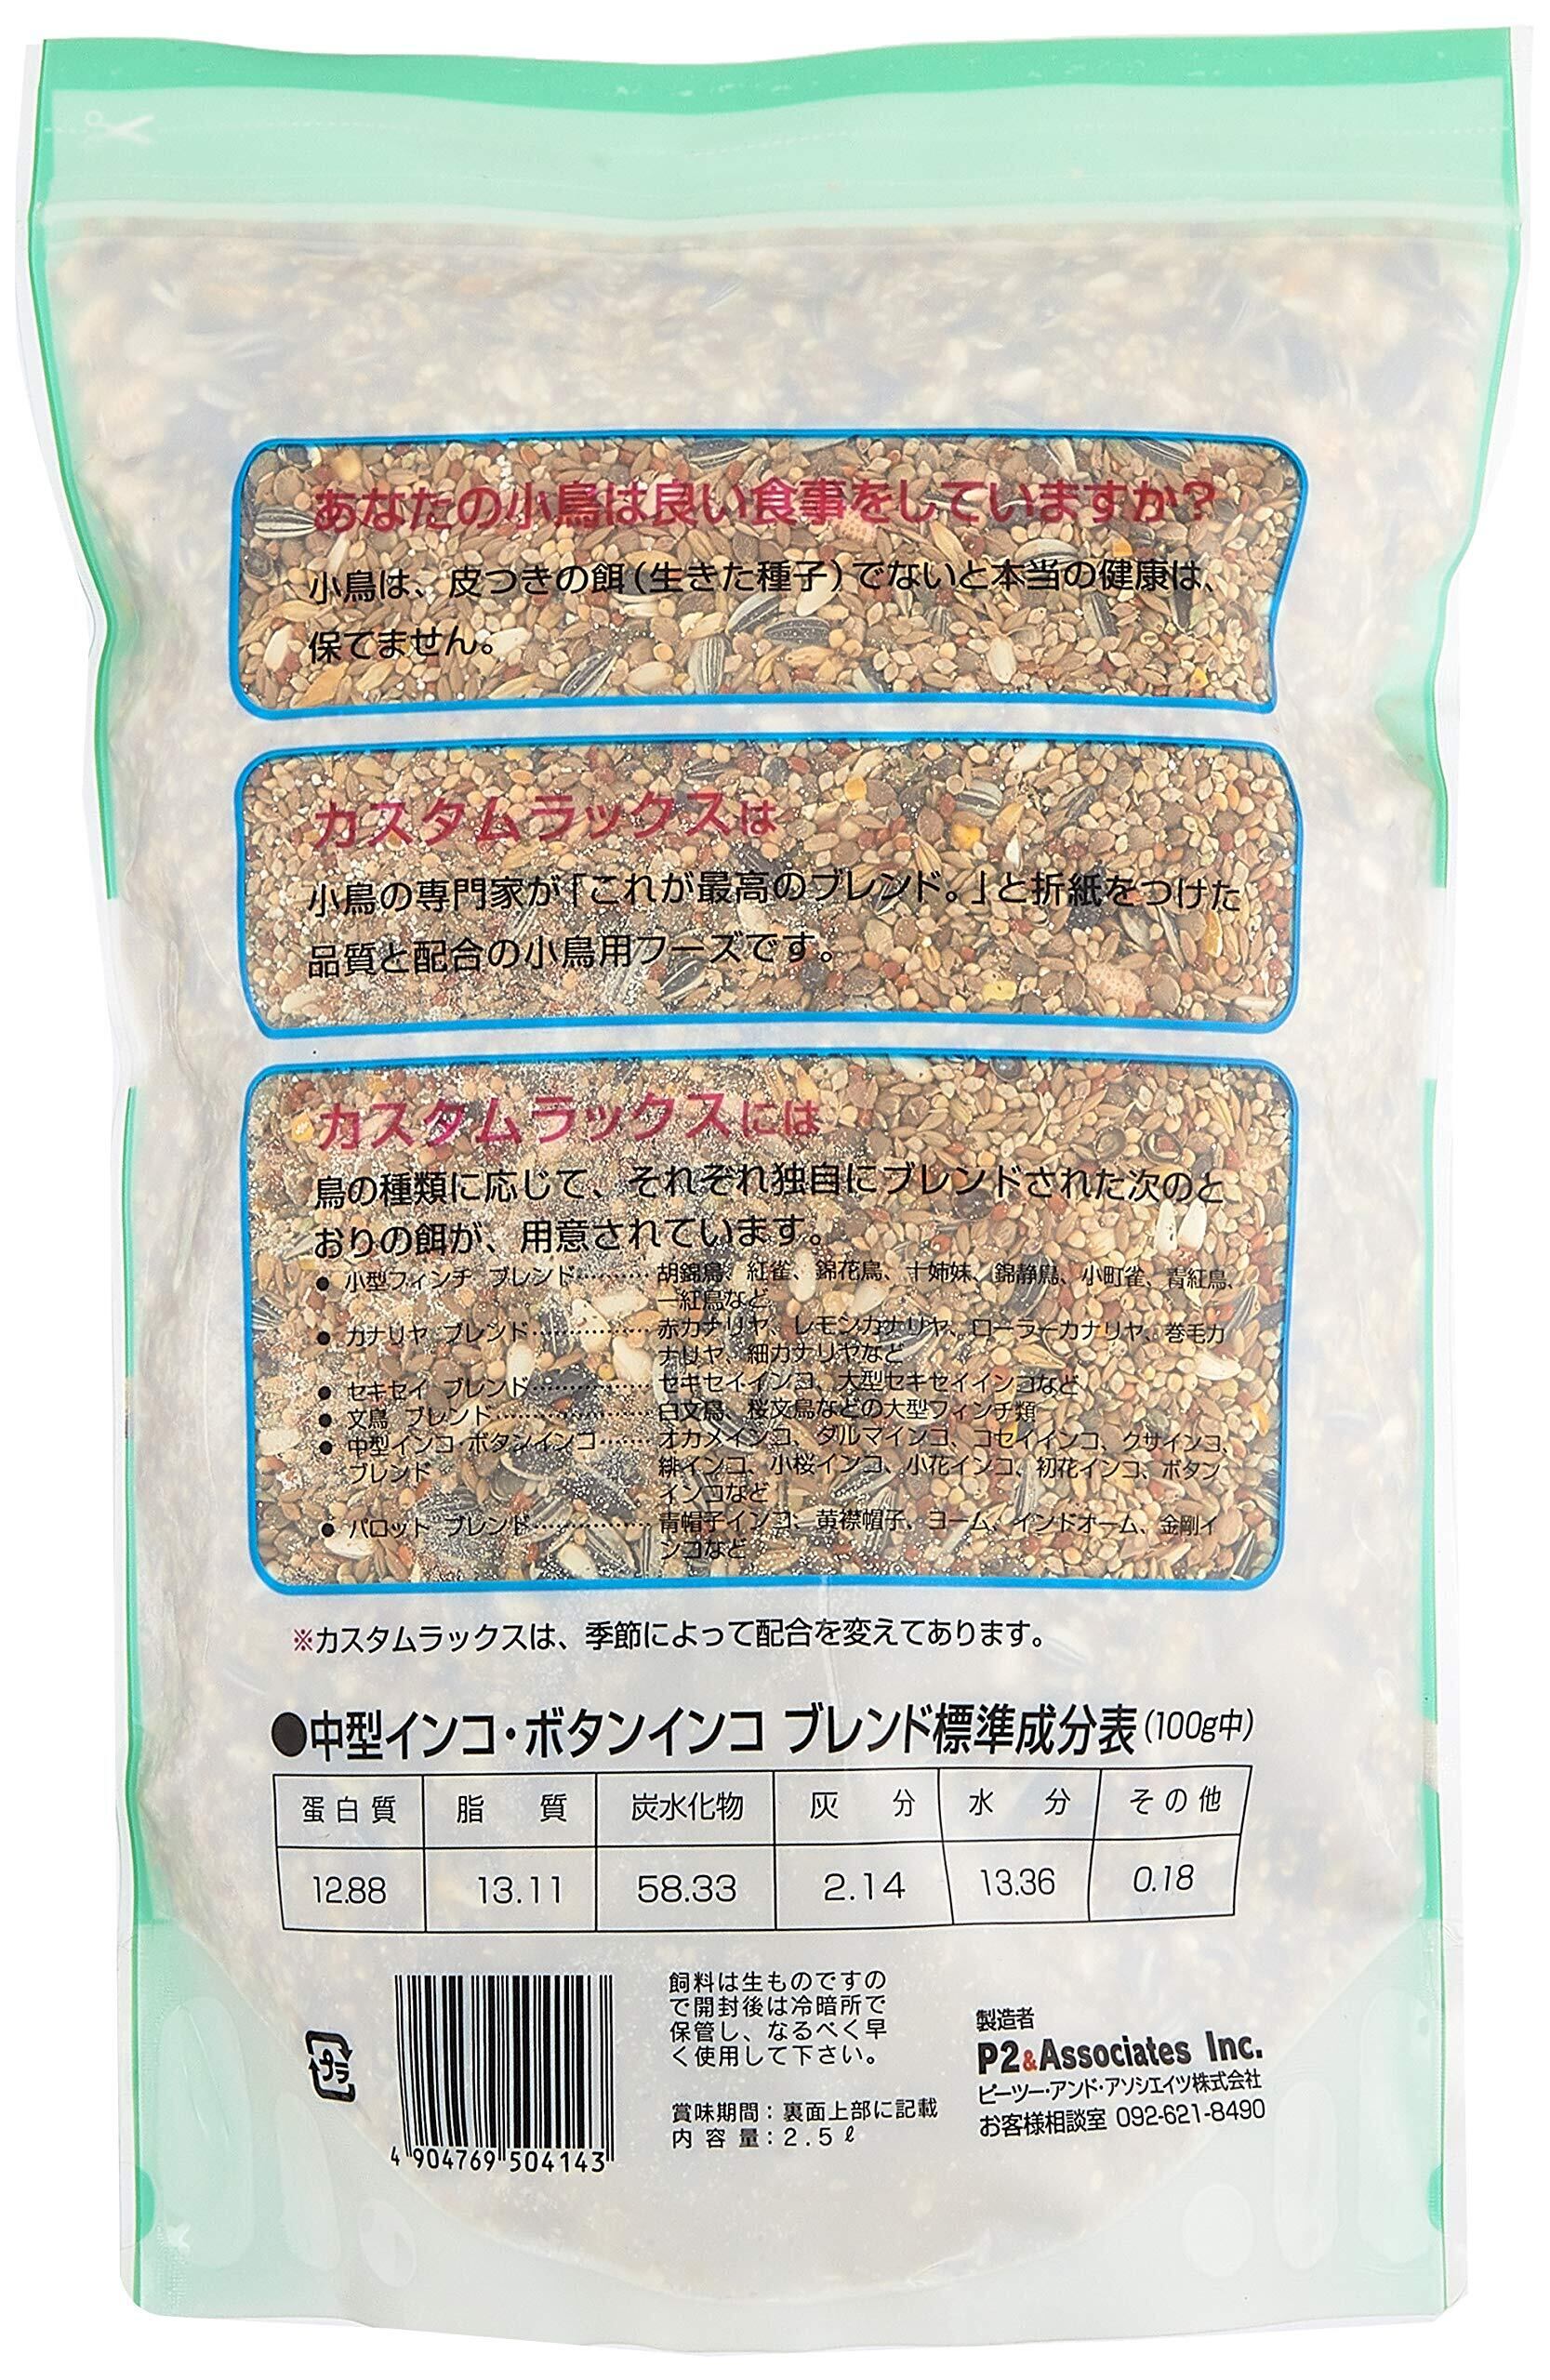 あなたの小鳥は良い食事をしていますか？
小鳥は、皮つきの餌（生きた種子）でないと本当の健康は、
保てません。
カスタムラックスは
小鳥の専門家が「これが最高のブレンド。」と折紙をつけた
品質と配合の小鳥用フーズです。
カスタムラックスには
鳥の種類に応じて、それぞれ独自にブレンドされた次のと
おりの餌が、用意されています。
● 小型フィンチ ブレンド………… 胡錦鳥、紅雀、錦花鳥、十姉妹、錦静鳥、小町雀、青紅鳥、
一紅鳥など
● カナリヤ ブレンド……………… 赤カナリヤ、レモンカナリヤ、ローラーカナリヤ、巻毛カ
ナリヤ、細カナリヤなど
● セキセイ ブレンド……………… セキセイインコ、大型セキセイインコなど
● 文鳥 ブレンド…………………… 白文鳥、桜文鳥などの大型フィンチ類
● 中型インコ・ボタンインコ……… オカメインコ、ダルマインコ、コセイインコ、クサインコ、
ブレンド 緋インコ、小桜インコ、小花インコ、初花インコ、ボタン
インコなど
● パロット ブレンド……………… 青帽子インコ、黄襟帽子、ヨーム、インドオーム、金剛イ
ンコなど
※カスタムラックスは、季節によって配合を変えてあります。
●中型インコ・ボタンインコ ブレンド標準成分表（100g中）
蛋白質 脂質 炭水化物 灰分 水分 その他
12.88 13.11 58.33 2.14 13.36 0.18
飼料は生ものですの
で開封後は冷暗所で
保管し、なるべく早
く使用して下さい。
賞味期間：裏面上部に記載
内容量：2.5ℓ
製造者
P2&Associates Inc.
ピーツー・アンド・アソシエイツ株式会社
お客様相談室 092-621-8490
プラ
4 904769 504143